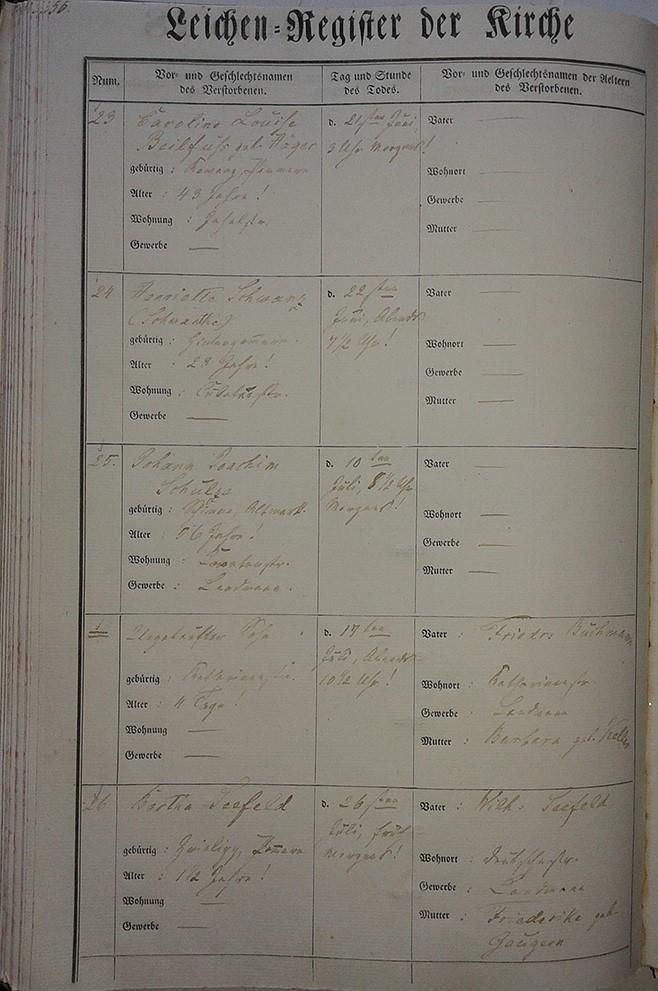 56.
Leichen-Register der Kirche
Num.
Vor- und Geschlechtsnamen
des Verstorbenen.
Tag und Stunde
des Todes.
Vor- und Geschlechtsnamen der Aeltern
des Verstorbenen.
23
Caroline Louise
Beilfuss geb. Jäger
gebürtig :
Alter : 43 Jahre!
Wohnung :
Gewerbe —
d. 21sten Juni,
3 Uhr Morgens!
Vater —
Wohnort —
Gewerbe —
Mutter —
24
Henriette Schwanz
(Schwantke)
gebürtig : Hinterpommern.
Alter : 28 Jahre!
Wohnung :
Gewerbe —
d. 22sten
Juni, Abends
7 1/2 Uhr!
Vater —
Wohnort —
Gewerbe —
Mutter —
25.
Johann Joachim
Schulze
gebürtig : Altmark.
Alter : 56 Jahre!
Wohnung :
Gewerbe : Landmann.
d. 10ten
Juli, 8 1/2 Uhr
Morgens!
Vater —
Wohnort —
Gewerbe —
Mutter —
Ungetaufter Sohn
gebürtig : Katharinenstr.
Alter : 11 Tage
Wohnung —
Gewerbe —
d. 17ten
Juli, Abends
10 1/2 Uhr!
Vater : Friedr. Buchmann
Wohnort : Katharinenstr.
Gewerbe : Landmann
Mutter : Barbara geb. Keller
26
Bertha Seefeld
gebürtig :
Alter : 1 1/2 Jahre!
Wohnung —
Gewerbe —
d. 26sten
Juli, früh
Morgens!
Vater : Wilh. Seefeld
Wohnort :
Gewerbe : Landmann
Mutter : Friederike geb.